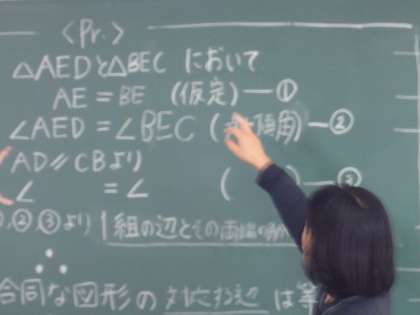 〈Pr.〉
△AEDと△BEC において
AE = BE (仮定) ー①
∠AED = ∠BEC ( 頂角) ー②
AD // CBより
∠ = ∠ ( ) ー③
①,②,③より 1組の辺とその両端の
∴
合同な図形の対応する辺は等